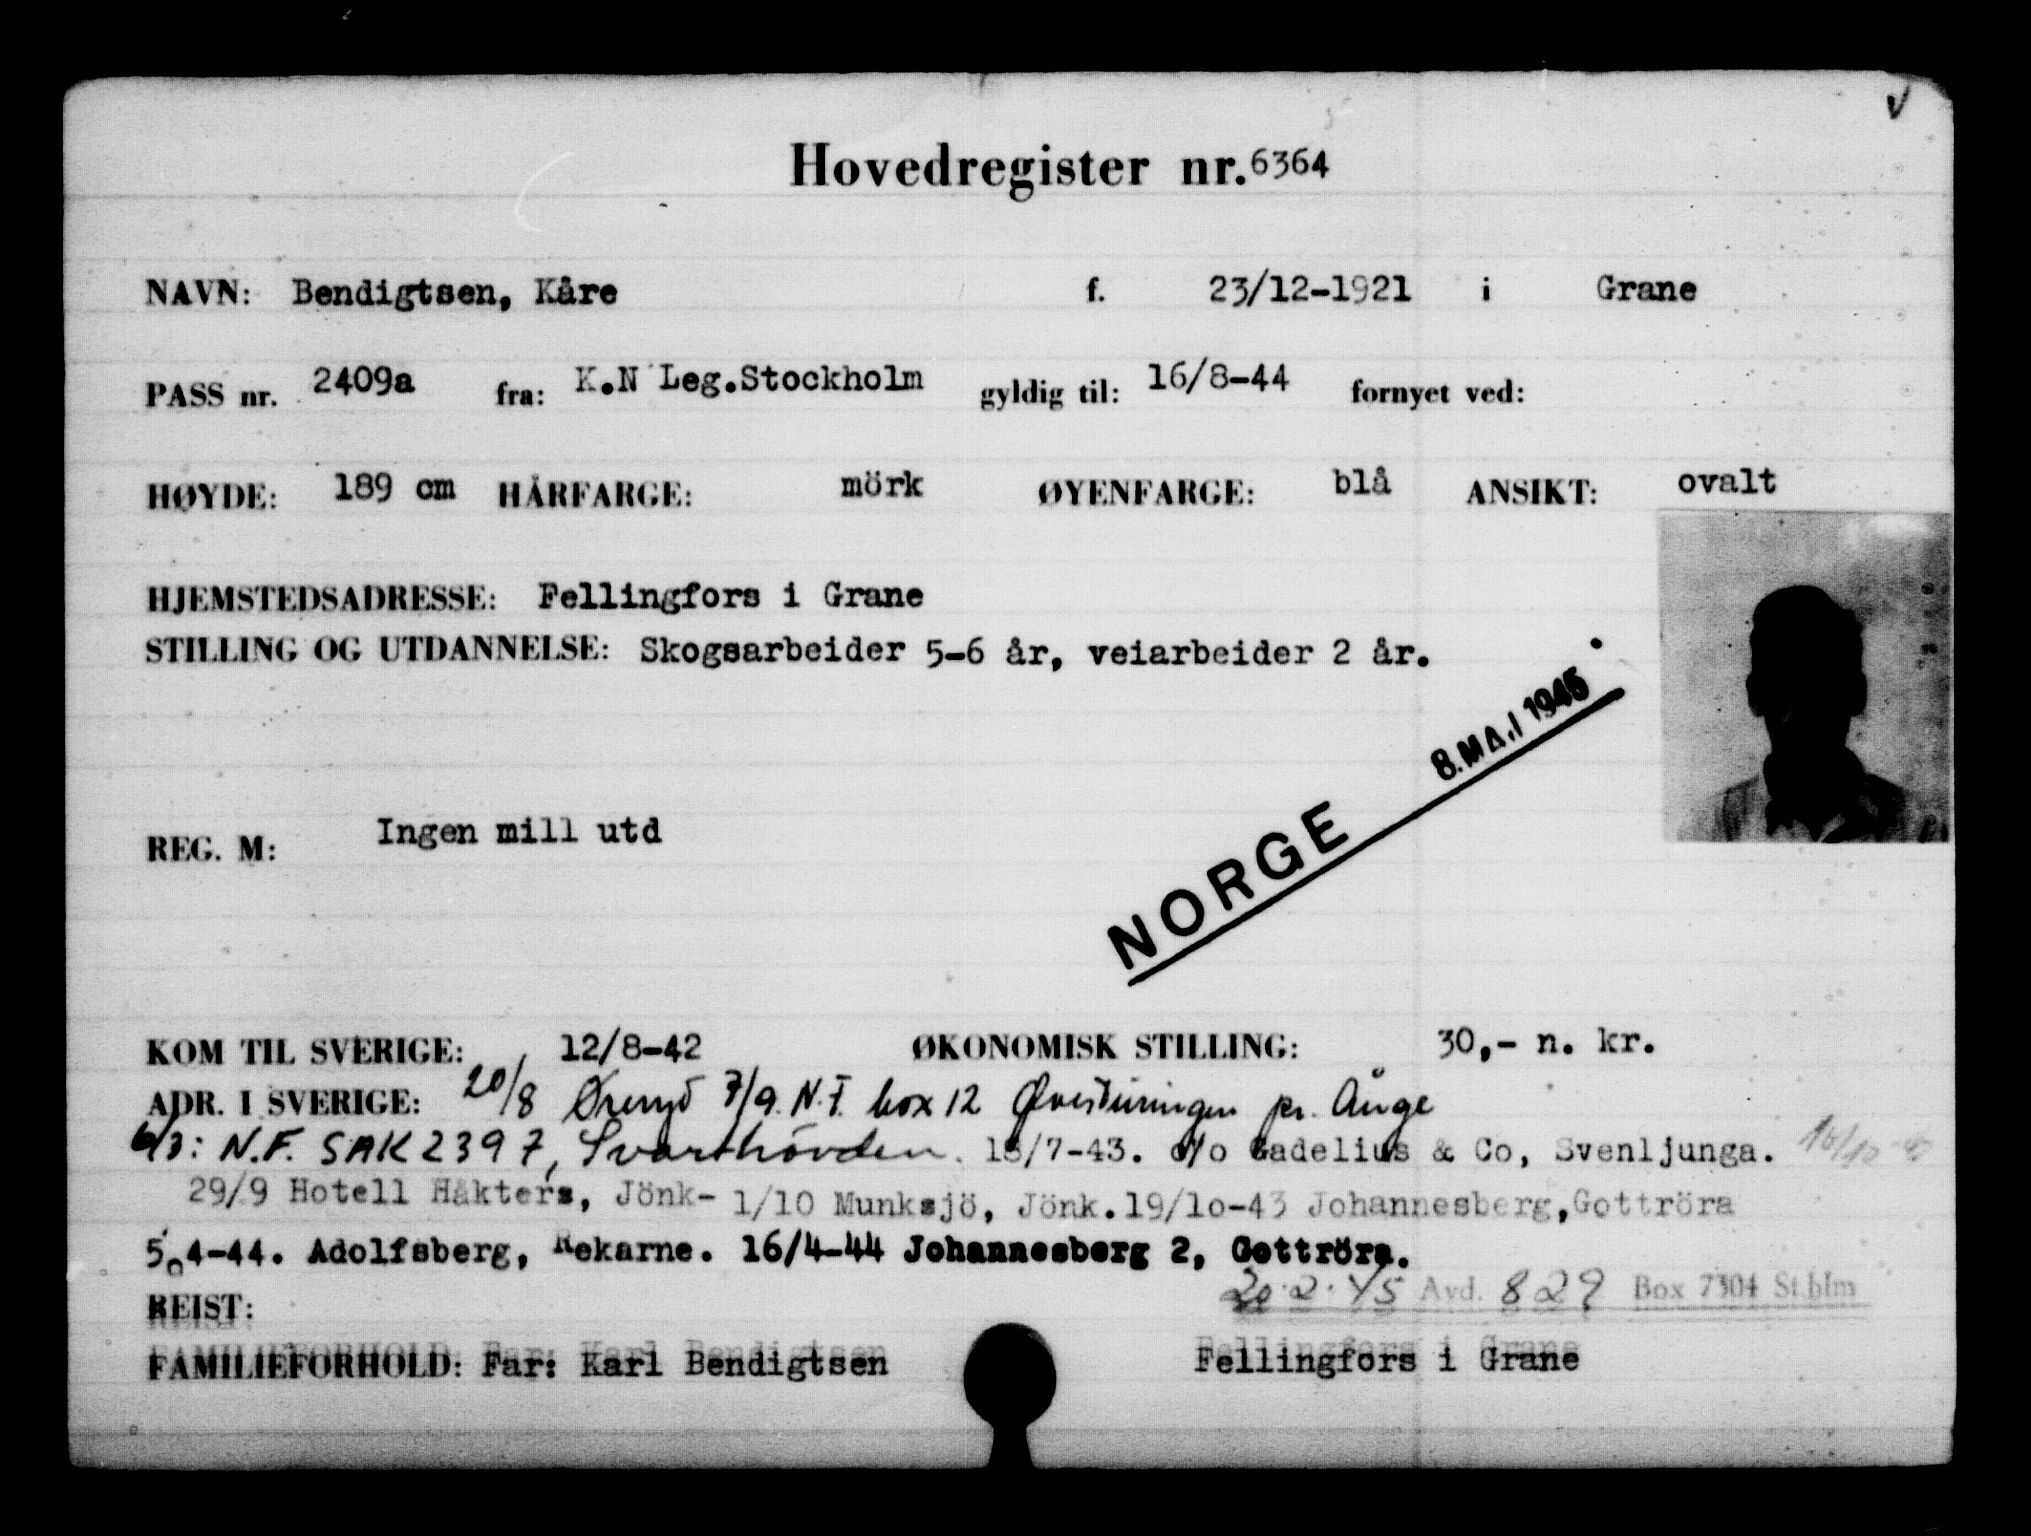 Hovedregister nr. 6364
NAVN: Bendigtsen, Kåre f. 23/12-1921 i Grane
PASS nr. 2409a fra: K.N Leg.Stockholm gyldig til: 16/8-44 fornyet ved:
HØYDE: 189 cm HÅRFARGE: mörk ØYENFARGE: blå ANSIKT: ovalt
HJEMSTEDSADRESSE: Fellingfors i Grane
STILLING OG UTDANNELSE: Skogsarbeider 5-6 år, veiarbeider 2 år.
8. MAI 1945
NORGE
REG. M: Ingen mill utd
KOM TIL SVERIGE: 12/8-42 ØKONOMISK STILLING: 30,- n. kr.
ADR. I SVERIGE: 20/8 Öreryd 7/9. N.F. box 12 Øvesturingen pr. Ånge
6/3: N.F. SAK 2397, Svarthövden. 15/7-43. c/o Gadelius & Co, Svenljunga.
29/9 Hotell Häkters, Jönk- 1/10 Munksjö, Jönk. 19/10-43 Johannesberg, Gottröra
5.4-44. Adolfsberg, Rekarne. 16/4-44 Johannesberg 2, Gottröra.
20.2.45 Avd. 829 Box 7304 St.hlm
REIST:
FAMILIEFORHOLD: Far: Karl Bendigtsen Fellingfors i Grane